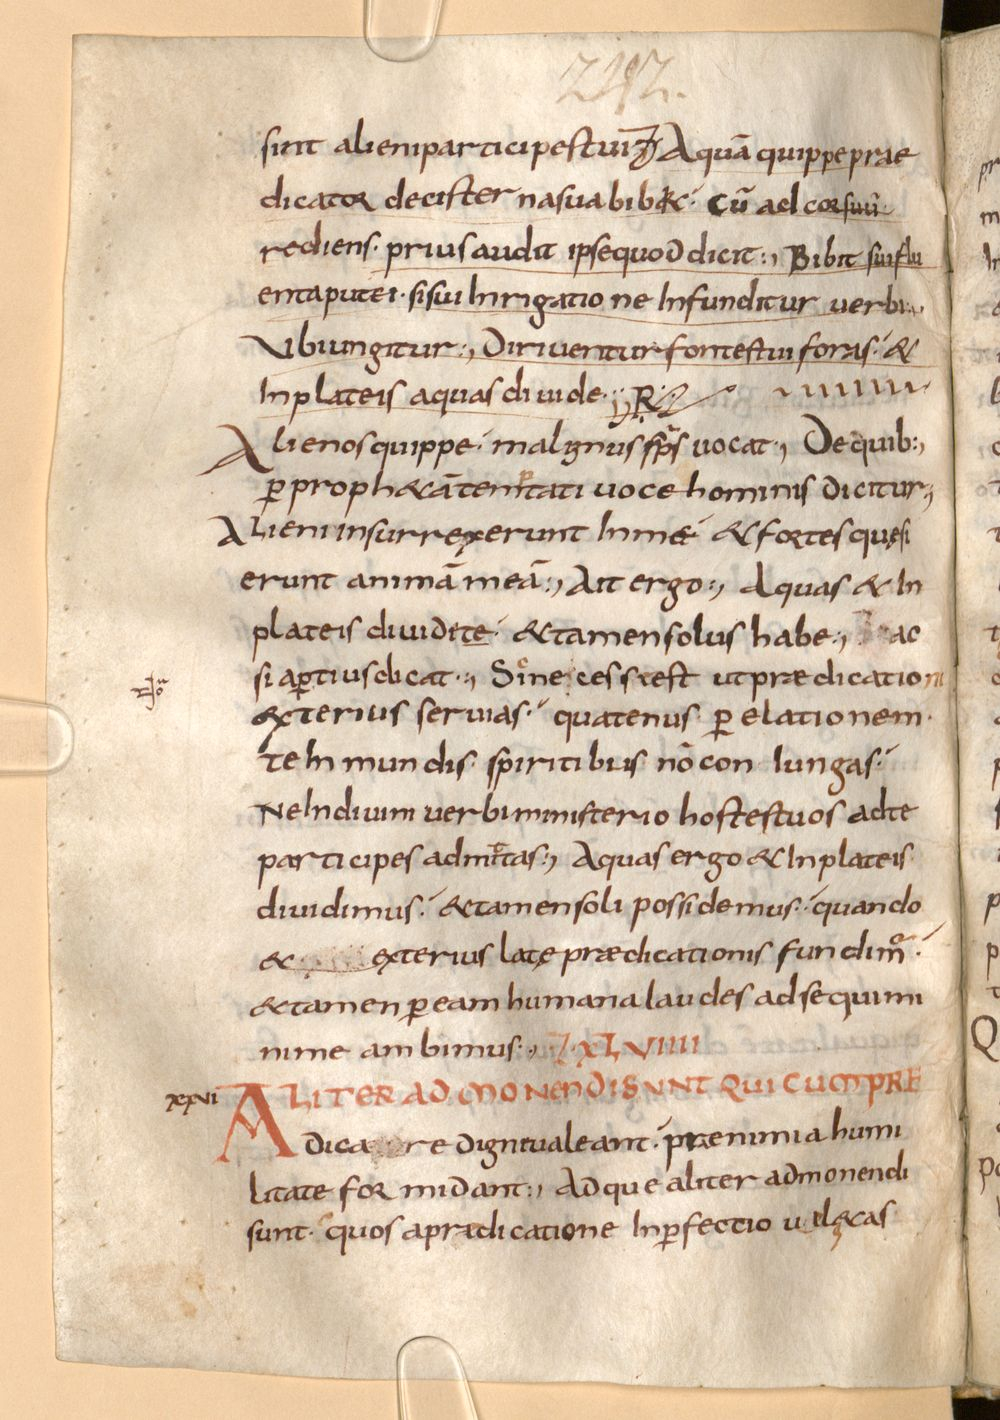 242.
sunt alieni participes tui; Aquā quippe prae
dicator de cisterna sua bibit. Cū ad cor suū
rediens. prius audit ipse quod dicit:, Bibit sui flu
enta putei. si sui inrigatione infunditur verbi.,
Ubi iungitur:, Diriventur fontes tui foras. &
in plateis aquas divide.:, R
Alienos quippe. malignus sp̄s vocat., De quib:,
ꝑ proph&ā temptati voce hominis dicitur.,
Alieni insurrexerunt in me & fortes quęsi
erunt animā meā:, Ait ergo:, Aquas & in
plateis dividite & tamen solus habe:, ac
si aꝑtius dicat.:, Sic necesse est ut prædicationi
exterius servias. quatenus ꝑ elationem.
te inmundis spiritibus nō coniungas.
Ne in divini verbi ministerio hostes tuos ad te
participes admittas:, Aquas ergo & in plateis
dividimus. & tamen soli possidemus. quando
& exterius late prædicationis fundim᾿.
& tamen ꝑ eam humana laudes adsequi mi
nime ambimus:, XLVIIII
xxvi ALITER ADMONENDI SUNT QUI CUM PRE
dicare digni valeant. præ nimia humi
litate formidant:, Adque aliter admonendi
sunt. quos a prædicatione inꝑfectio vel &as